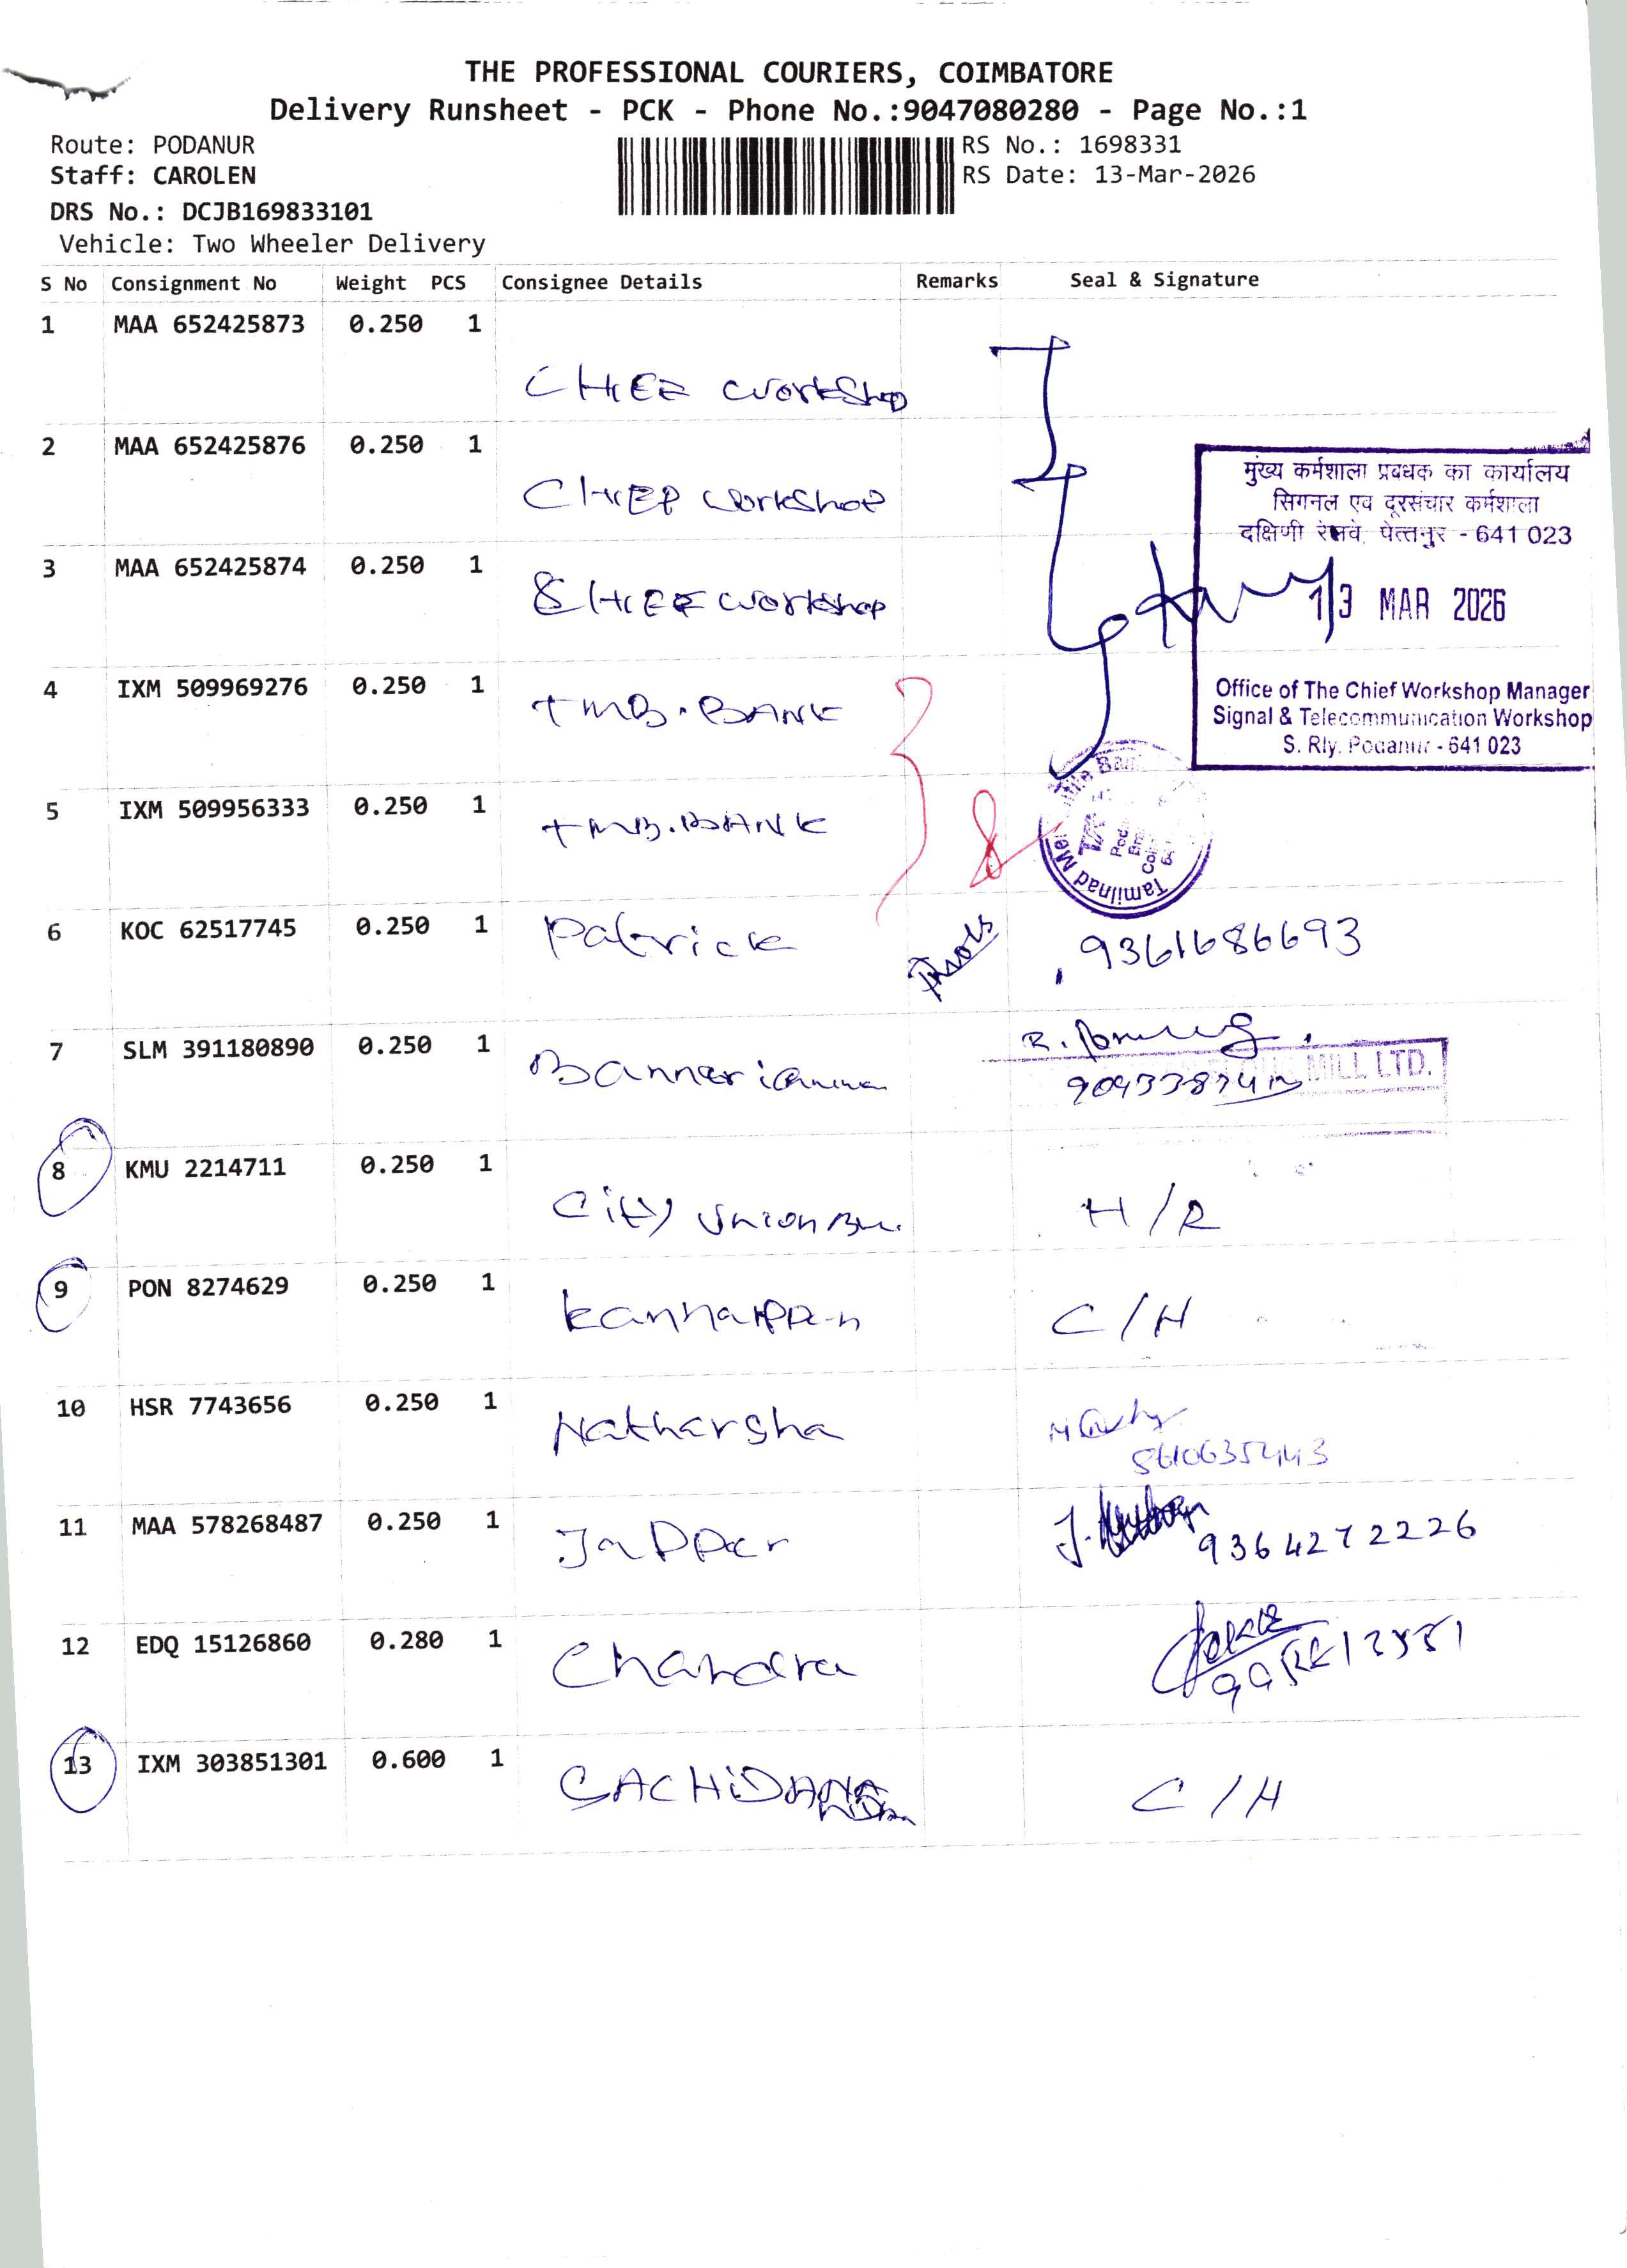 THE PROFESSIONAL COURIERS, COIMBATORE
Delivery Runsheet - PCK - Phone No.:9047080280 - Page No.:1
Route: PODANUR
RS No.: 1698331
Staff: CAROLEN
RS Date: 13-Mar-2026
DRS No.: DCJB169833101
Vehicle: Two Wheeler Delivery
S No Consignment No Weight PCS Consignee Details Remarks Seal & Signature
1 MAA 652425873 0.250 1
CHIEF Workshop
2 MAA 652425876 0.250 1
CHIEF Workshop
मुख्य कर्मशाला प्रबधक का कार्यालय
सिगनल एव दूरसंचार कर्मशाला
दक्षिणी रेलवे - 641 023
3 MAA 652425874 0.250 1
CHIEF Workshop
13 MAR 2026
Office of The Chief Workshop Manager
Signal & Telecommunication Workshop
S. Rly. Podanur - 641 023
4 IXM 509969276 0.250 1
TMB. BANK
5 IXM 509956333 0.250 1
TMB. BANK
Tamilnad
6 KOC 62517745 0.250 1
Patrick
9361686693
7 SLM 391180890 0.250 1
MILL LTD.
8 KMU 2214711 0.250 1
City Union
H/R
9 PON 8274629 0.250 1
Kannappan
C/H
10 HSR 7743656 0.250 1
Natharsha
11 MAA 578268487 0.250 1
9364272226
12 EDQ 15126860 0.280 1
Chandra
13 IXM 303851301 0.600 1
C/H